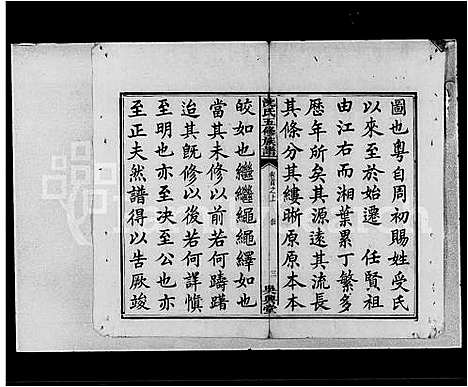 圖也粵自周初賜姓受氏
以來至於始遷　任賢祖
由江右而湘葉累丁繁多
歷年所矣其源遠其流長
其條分其縷晰原原本本
沈氏五修族譜
卷首之上
三
吳興堂
皎如也繼繼繩繩繹如也
當其未修以前若何躊躇
迨其旣修以後若何詳慎
至明也亦至決至公也亦
至正夫然譜得以告厥竣